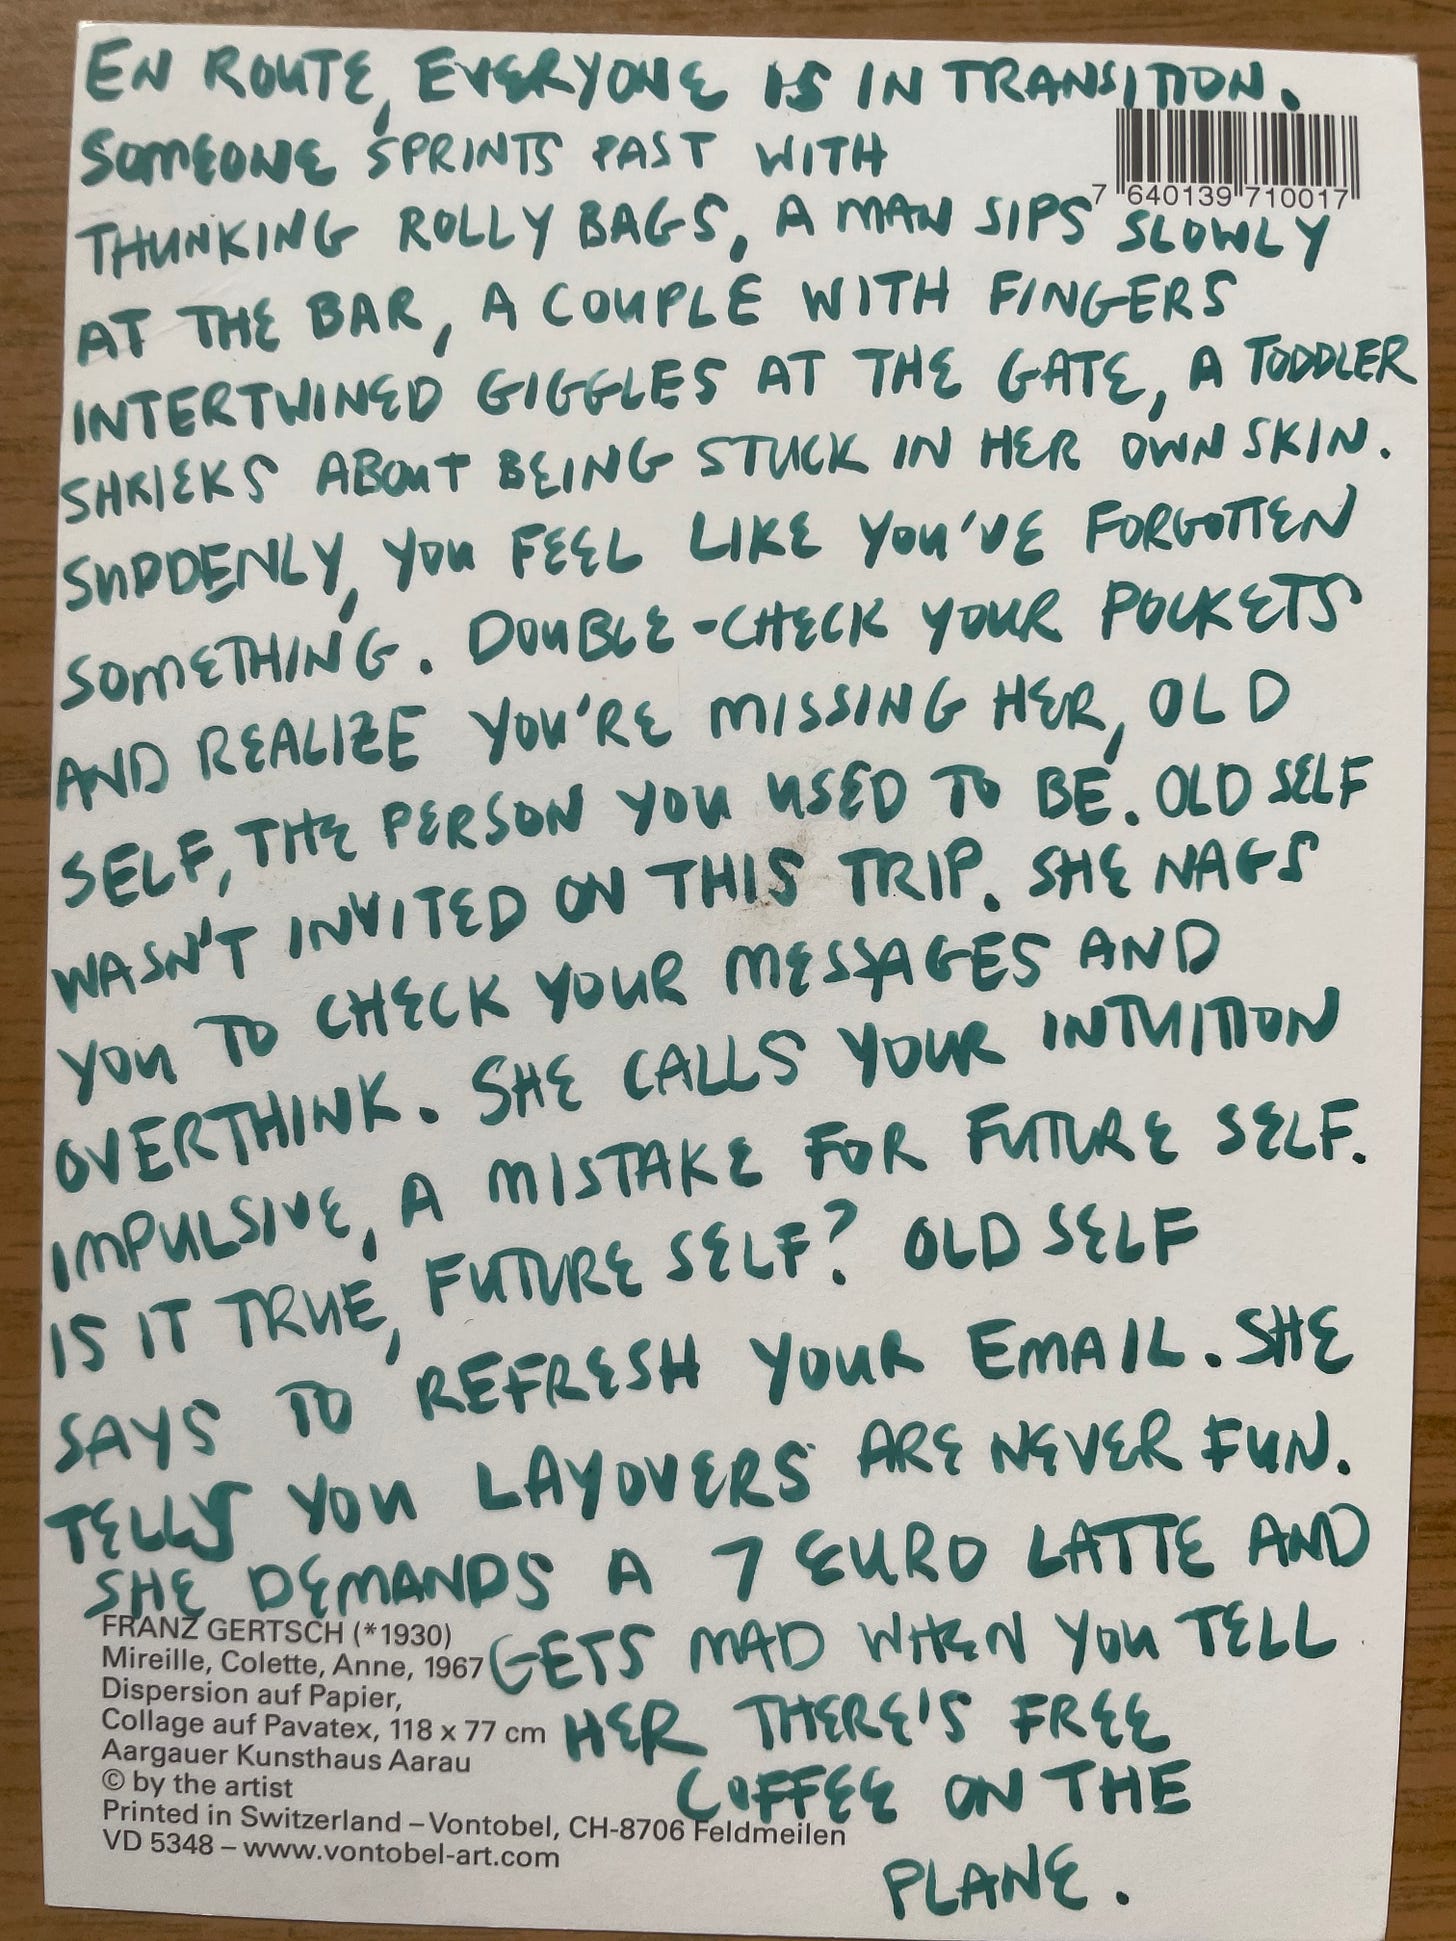 EN ROUTE, EVERYONE IS IN TRANSITION.
SOMEONE SPRINTS PAST WITH
7 640139 710017
THUNKING ROLLY BAGS, A MAN SIPS SLOWLY
AT THE BAR, A COUPLE WITH FINGERS
INTERTWINED GIGGLES AT THE GATE, A TODDLER
SHRIEKS ABOUT BEING STUCK IN HER OWN SKIN.
SUDDENLY, YOU FEEL LIKE YOU'VE FORGOTTEN
SOMETHING. DOUBLE-CHECK YOUR POCKETS
AND REALIZE YOU'RE MISSING HER, OLD
SELF, THE PERSON YOU USED TO BE. OLD SELF
WASN'T INVITED ON THIS TRIP. SHE NAGS
YOU TO CHECK YOUR MESSAGES AND
OVERTHINK. SHE CALLS YOUR INTUITION
IMPULSIVE, A MISTAKE FOR FUTURE SELF.
IS IT TRUE, FUTURE SELF? OLD SELF
SAYS TO REFRESH YOUR EMAIL. SHE
TELLS YOU LAYOVERS ARE NEVER FUN.
SHE DEMANDS A 7 EURO LATTE AND
GETS MAD WHEN YOU TELL
HER THERE'S FREE
COFFEE ON THE
PLANE.
FRANZ GERTSCH (*1930)
Mireille, Colette, Anne, 1967
Dispersion auf Papier,
Collage auf Pavatex, 118 x 77 cm
Aargauer Kunsthaus Aarau
© by the artist
Printed in Switzerland – Vontobel, CH-8706 Feldmeilen
VD 5348 – www.vontobel-art.com